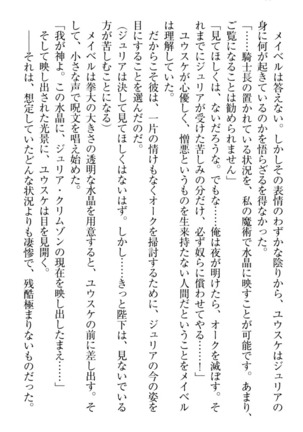 ない。しかしその表情のわずかな陰りから、ユウスケはジュリアの
身に何が起きているのかを悟らざるを得なかった。
「……騎士長の置かれている状況を、私の魔術で水晶に映すことが可能です。あまり、
ご覧になることは勧められません」
「見てほしくは、ないだろうな。でもな……俺は夜が明けたら、オークを滅ぼす。そ
れまでにジュリアが受けた苦しみの分だけ、必ず奴らに償わせてやる……！」
ユウスケが心優しく、憎悪というものを生来持たない人間だということをメイベル
は理解していた。
だからこそ彼は、一片の情けもなくオークを掃討するために、ジュリアの今の姿を
目にすることを選んだのだ。
（ジュリアは決して見てほしくはないはず。しかし……きっと陛下は、見ないでいる
方が苦しむことになる）
メイベルは拳大の大きさの透明な水晶を用意すると、ユウスケの前に差し出す。そ
して、小さな声で呪文を唱え始めた。
「我が神よ。この水晶に、ジュリア・クリムゾンの現在を映し出したまえ……」
そして映し出された光景に、ユウスケは目を見開く。
――それは、想定していたどんな状況よりも凄惨で、残酷極まりないものだった。